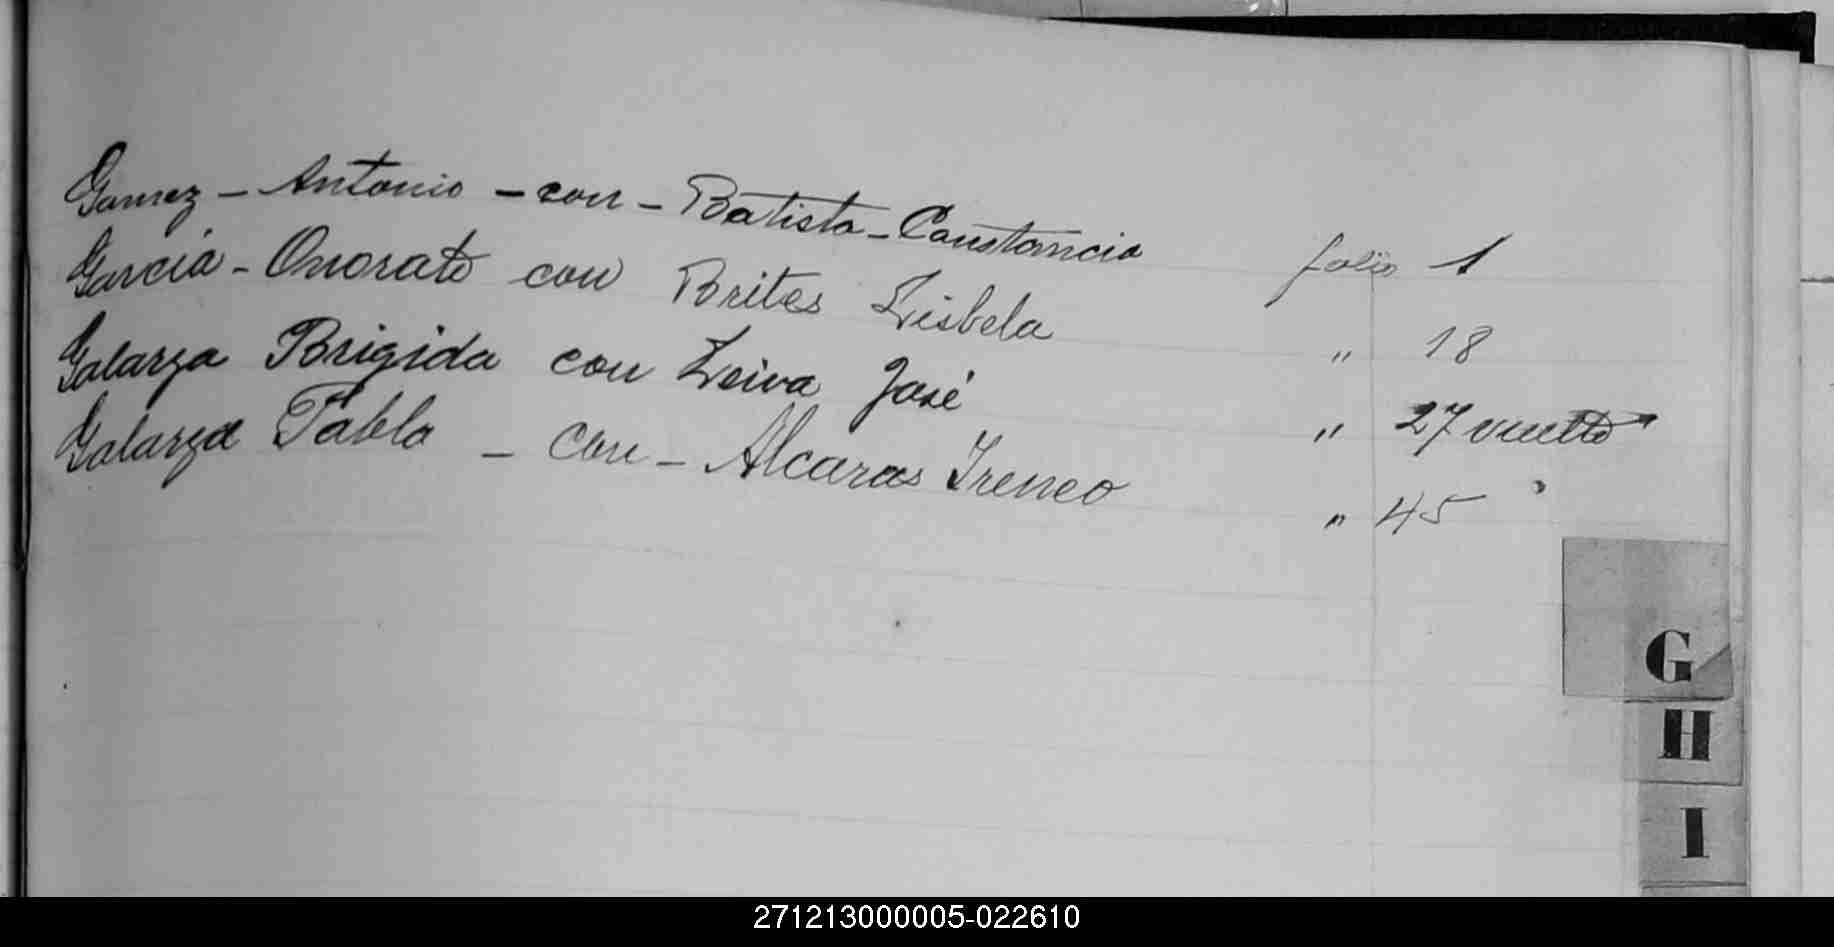 Gamez - Antonio - con - Batista - Constancia folio 1
Garcia - Onorato con Brites Lisbela " 18
Galarza Brigida con Leiva José " 27 vuelto
Galarza Pabla - con - Alcaras Ireneo " 45
G
H
I
271213000005-022610